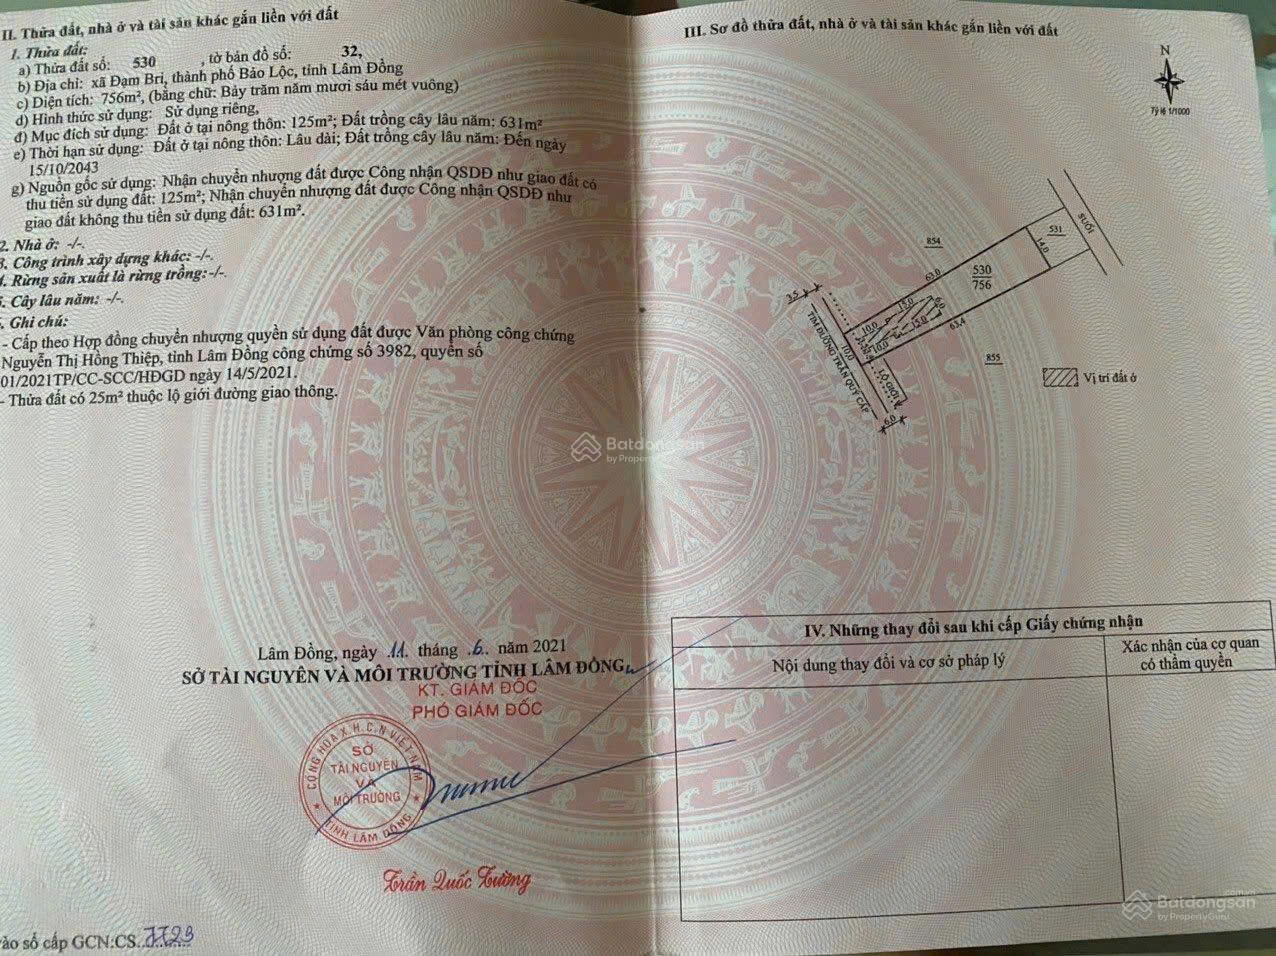 II. Thửa đất, nhà ở và tài sản khác gắn liền với đất
1. Thửa đất:
a) Thửa đất số: 530 , tờ bản đồ số: 32,
b) Địa chỉ: xã Đạm Bri, thành phố Bảo Lộc, tỉnh Lâm Đồng
c) Diện tích: 756m², (bằng chữ: Bảy trăm năm mươi sáu mét vuông)
d) Hình thức sử dụng: Sử dụng riêng,
đ) Mục đích sử dụng: Đất ở tại nông thôn: 125m²; Đất trồng cây lâu năm: 631m²
e) Thời hạn sử dụng: Đất ở tại nông thôn: Lâu dài; Đất trồng cây lâu năm: Đến ngày
15/10/2043
g) Nguồn gốc sử dụng: Nhận chuyển nhượng đất được Công nhận QSDĐ như giao đất có
thu tiền sử dụng đất: 125m²; Nhận chuyển nhượng đất được Công nhận QSDĐ như
giao đất không thu tiền sử dụng đất: 631m².
2. Nhà ở: -/-.
3. Công trình xây dựng khác: -/-.
4. Rừng sản xuất là rừng trồng: -/-.
5. Cây lâu năm: -/-.
. Ghi chú:
- Cấp theo Hợp đồng chuyển nhượng quyền sử dụng đất được Văn phòng công chứng
Nguyễn Thị Hồng Thiệp, tỉnh Lâm Đồng công chứng số 3982, quyển số
01/2021TP/CC-SCC/HĐGD ngày 14/5/2021.
- Thửa đất có 25m² thuộc lộ giới đường giao thông.
Lâm Đồng, ngày 11 tháng 6 năm 2021
SỞ TÀI NGUYÊN VÀ MÔI TRƯỜNG TỈNH LÂM ĐỒNG
KT. GIÁM ĐỐC
PHÓ GIÁM ĐỐC
CỘNG HÒA X.H.C.N VIỆT NAM
SỞ
TÀI NGUYÊN
VÀ
MÔI TRƯỜNG
TỈNH LÂM ĐỒNG
Trần Quốc Tường
vào sổ cấp GCN:CS..7723
III. Sơ đồ thửa đất, nhà ở và tài sản khác gắn liền với đất
N
Tỷ lệ 1/1000
SUỐI
531
14.0
854
63.0
530
756
3.5
15.0
6.0
10.0
15.0
63.4
10.0
10.0
TIM ĐƯỜNG TRẦN QUÝ CÁP
LỘ GIỚI
6.0
855
Vị trí đất ở
Batdongsan
by PropertyGuru
IV. Những thay đổi sau khi cấp Giấy chứng nhận
Nội dung thay đổi và cơ sở pháp lý
Xác nhận của cơ quan
có thẩm quyền
Batdongsan
by PropertyGuru